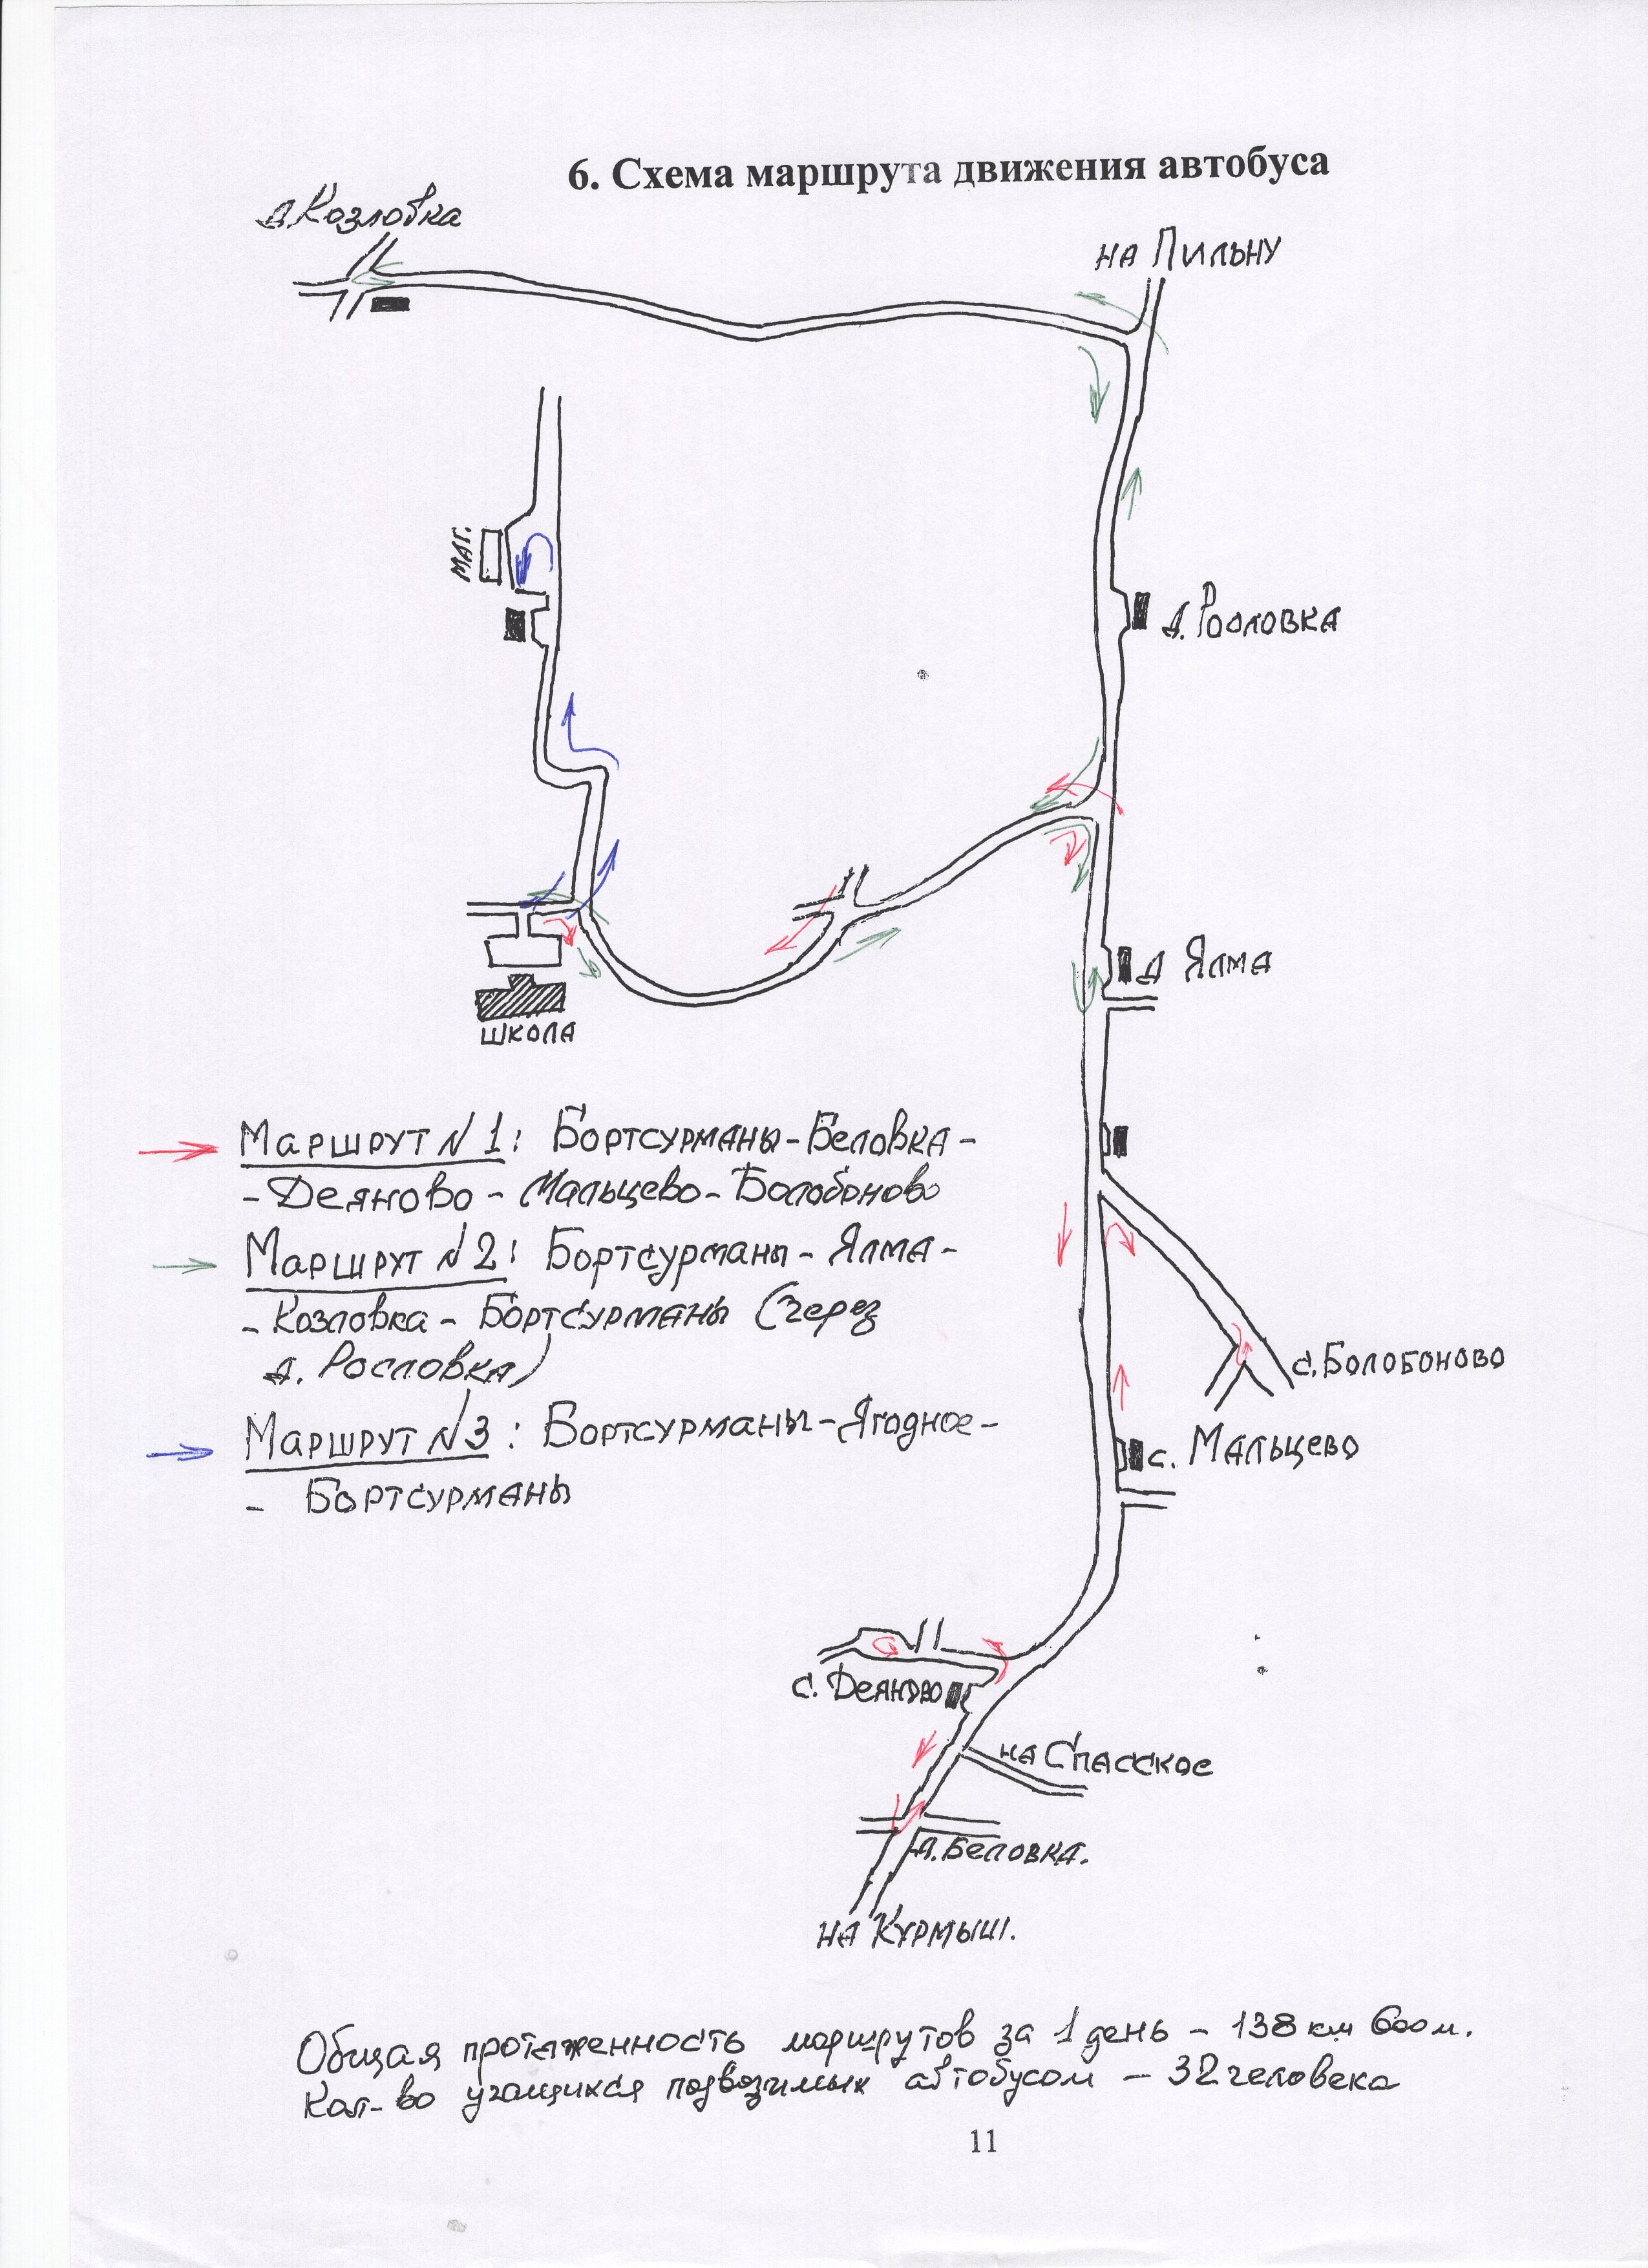 6. Схема маршрута движения автобуса
д. Козловка
на Пильну
маг.
д. Рословка
д Ялма
школа
Маршрут №1: Бортсурманы-Беловка-
-Деяново-Мальцево-Болобоново
Маршрут №2: Бортсурманы-Ялма-
-Козловка-Бортсурманы (через
д. Рословка)
Маршрут №3: Бортсурманы-Ягодное-
- Бортсурманы
с. Болобоново
с. Мальцево
с. Деяново
на Спасское
д. Беловка.
на Курмыш.
Общая протяженность маршрутов за 1 день - 138 км 600 м.
Кол-во учащихся подвозимых автобусом - 32 человека
11